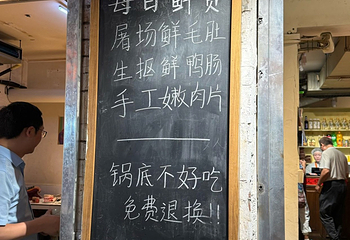 每日鲜货
屠场鲜毛肚
生抠鲜鸭肠
手工嫩肉片
锅底不好吃
免费退换!!